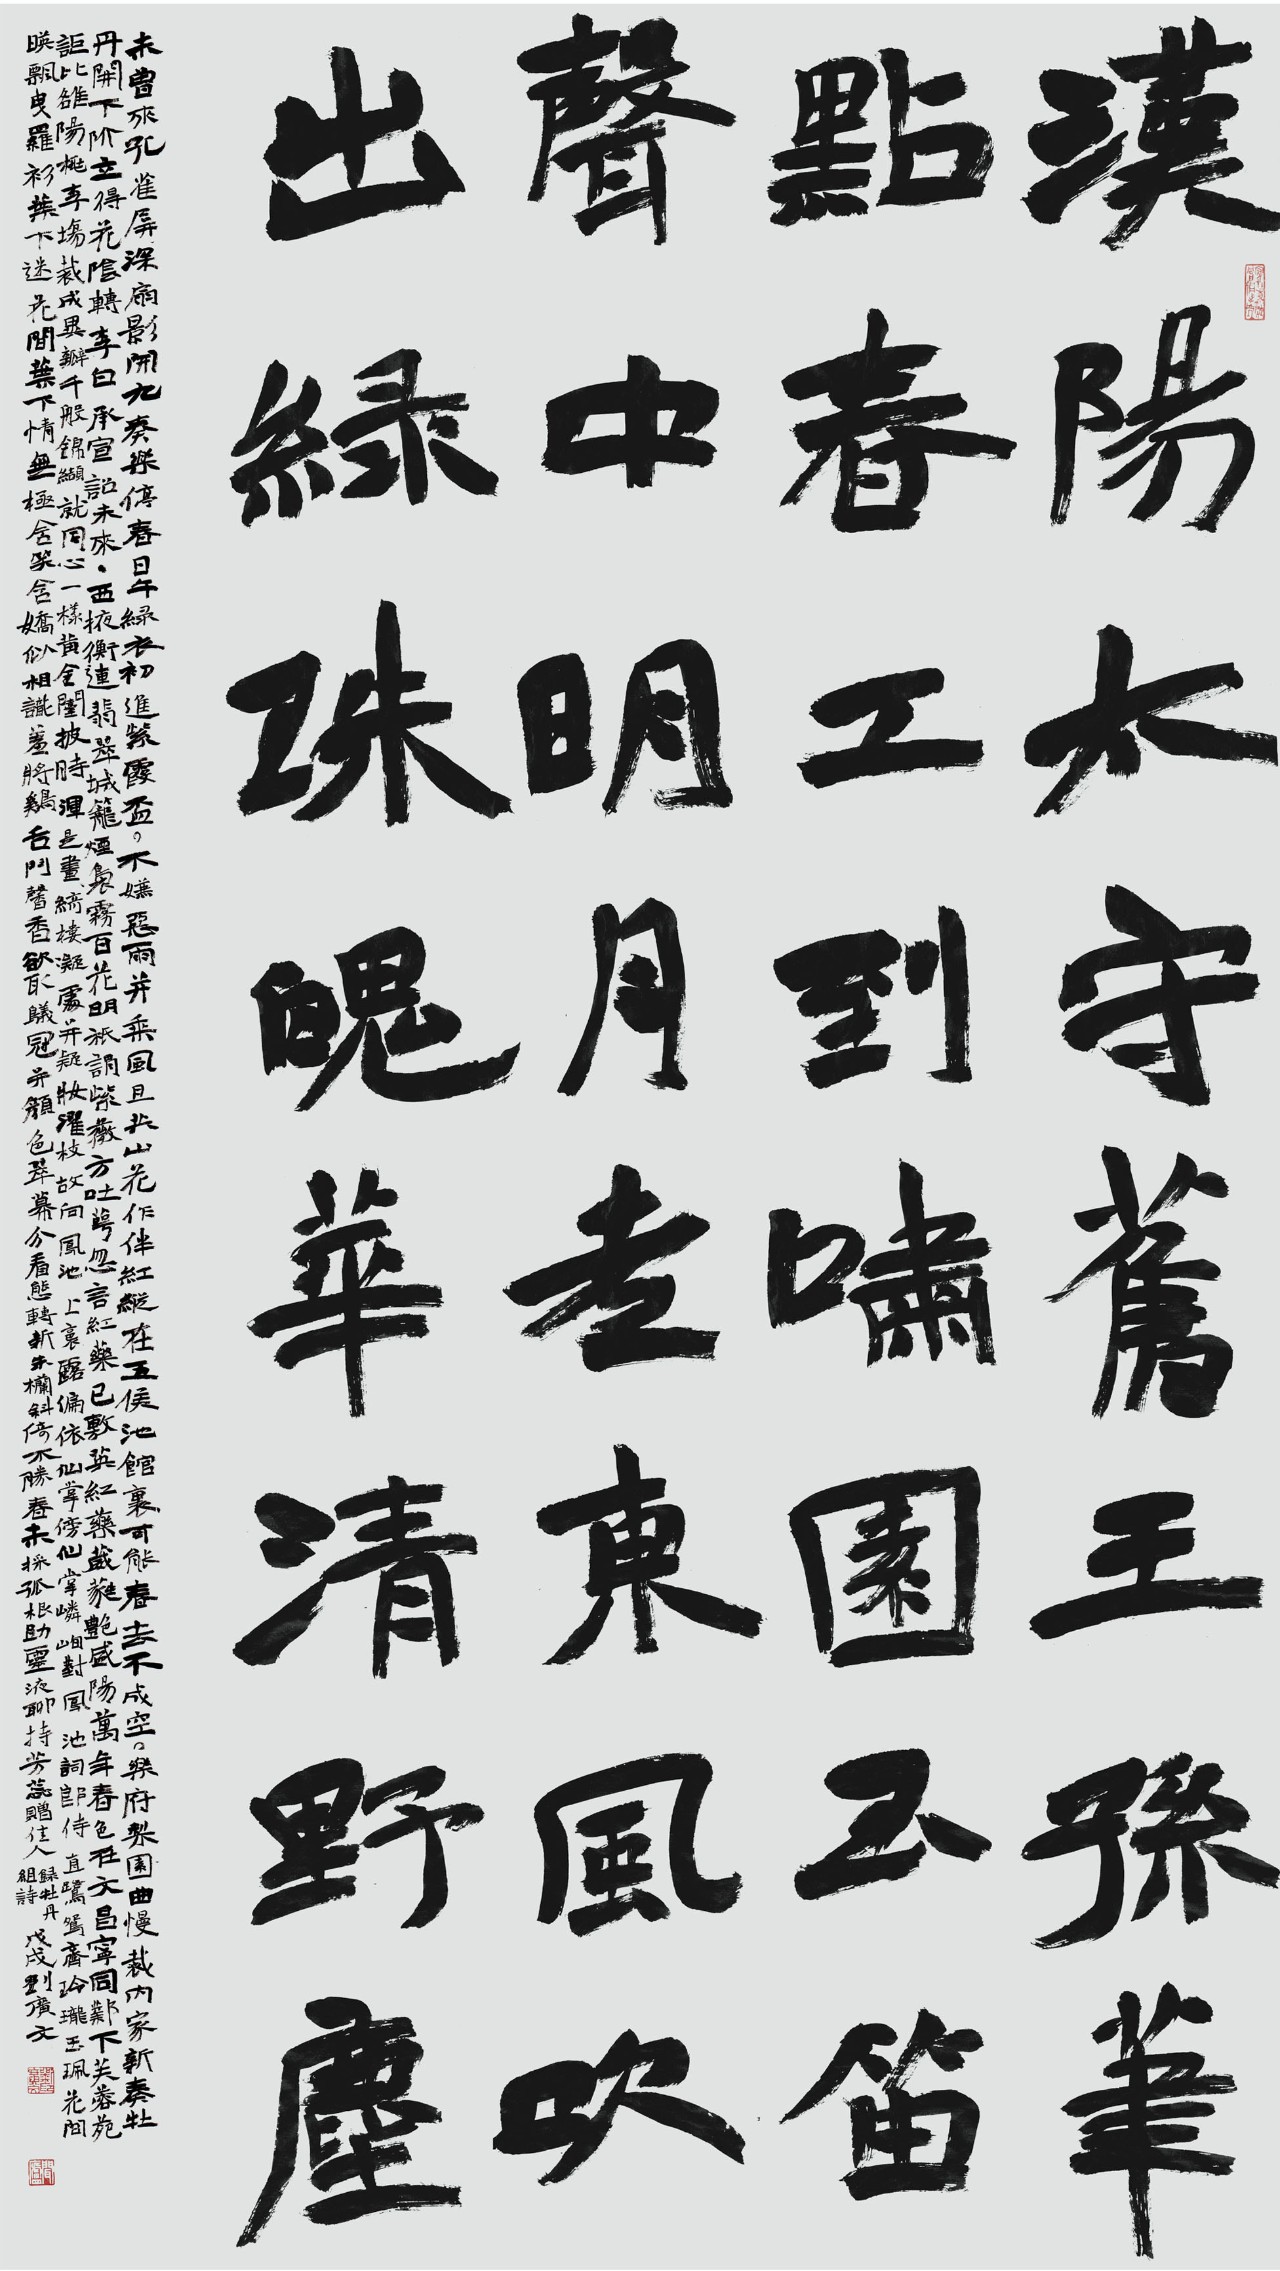 漢陽太守舊王孫筆
點春工到嘯園玉笛
聲中明月老東風吹
出綠珠魄華清野塵
未曾來孔雀屏深扇影開九奏樂停春日午綠衣初進紫霞盃。不嫌惡雨并乘風且共山花作伴紅縱在五侯池館裏可能春去不成空。樂府梨園曲慢裁內家新奏牡
丹開下階立得花陰轉李白承宣詔未來、西掖衡連翡翠城籠煙裊霧百花明祇謂紫薇方吐萼忽言紅藥已敷英紅藥葳蕤艷咸陽萬年春色在文昌寧同鄴下芙蓉苑
詎比雒陽桃李場裁成異瓣千般錦纈就同心一樣黃金闥披時渾是畫綺樓凝處并疑妝濯枝故向鳳池上裛露偏依仙掌傍仙掌嶙峋對鳳池詞郎侍直鷺鴛齊玲瓏玉珮花間
暎飄曳羅衫葉下迷花間葉下情無極含笑含嬌似相識羞將鷄舌鬥馨香欲取鶡冠并顏色翠幕分看態轉新朱欄斜倚不勝春未採孤根助靈液聊持芳蕊贈佳人
錄牡丹
組詩
戊戌劉廣文